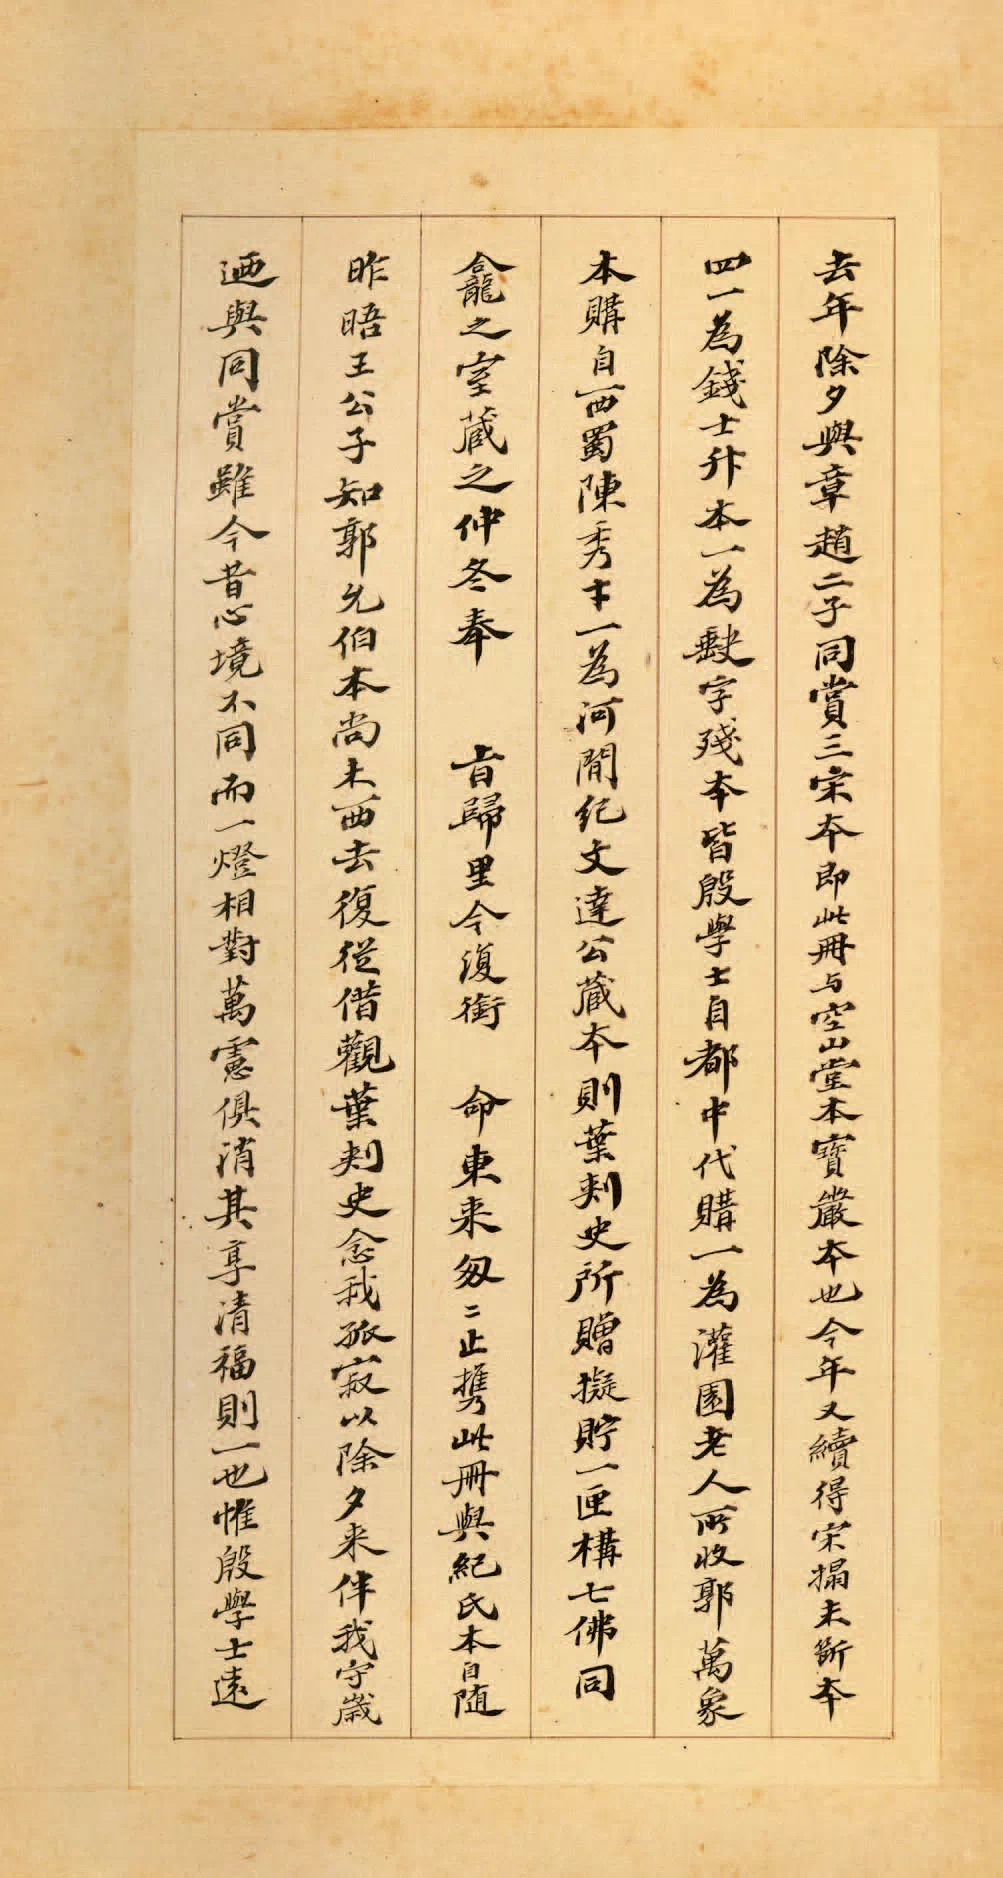 去年除夕與章趙二子同賞三宋本即此冊与空山堂本寶嚴本也今年又續得宋搨未斷本
四一為錢士升本一為數字殘本皆殷學士自都中代購一為灌園老人所收郭萬象
本購自西蜀陳秀才一為河間紀文達公藏本則葉剌史所贈擬貯一匣構七佛同
龕之室藏之仲冬奉 旨歸里今復銜 命東来匆二止攜此冊與紀氏本自随
昨晤王公子知郭允伯本尚未西去復從借觀葉剌史念我孤寂以除夕来伴我守歲
迺與同賞雖今昔心境不同而一燈相對萬慮俱消其享清福則一也惟殷學士遠